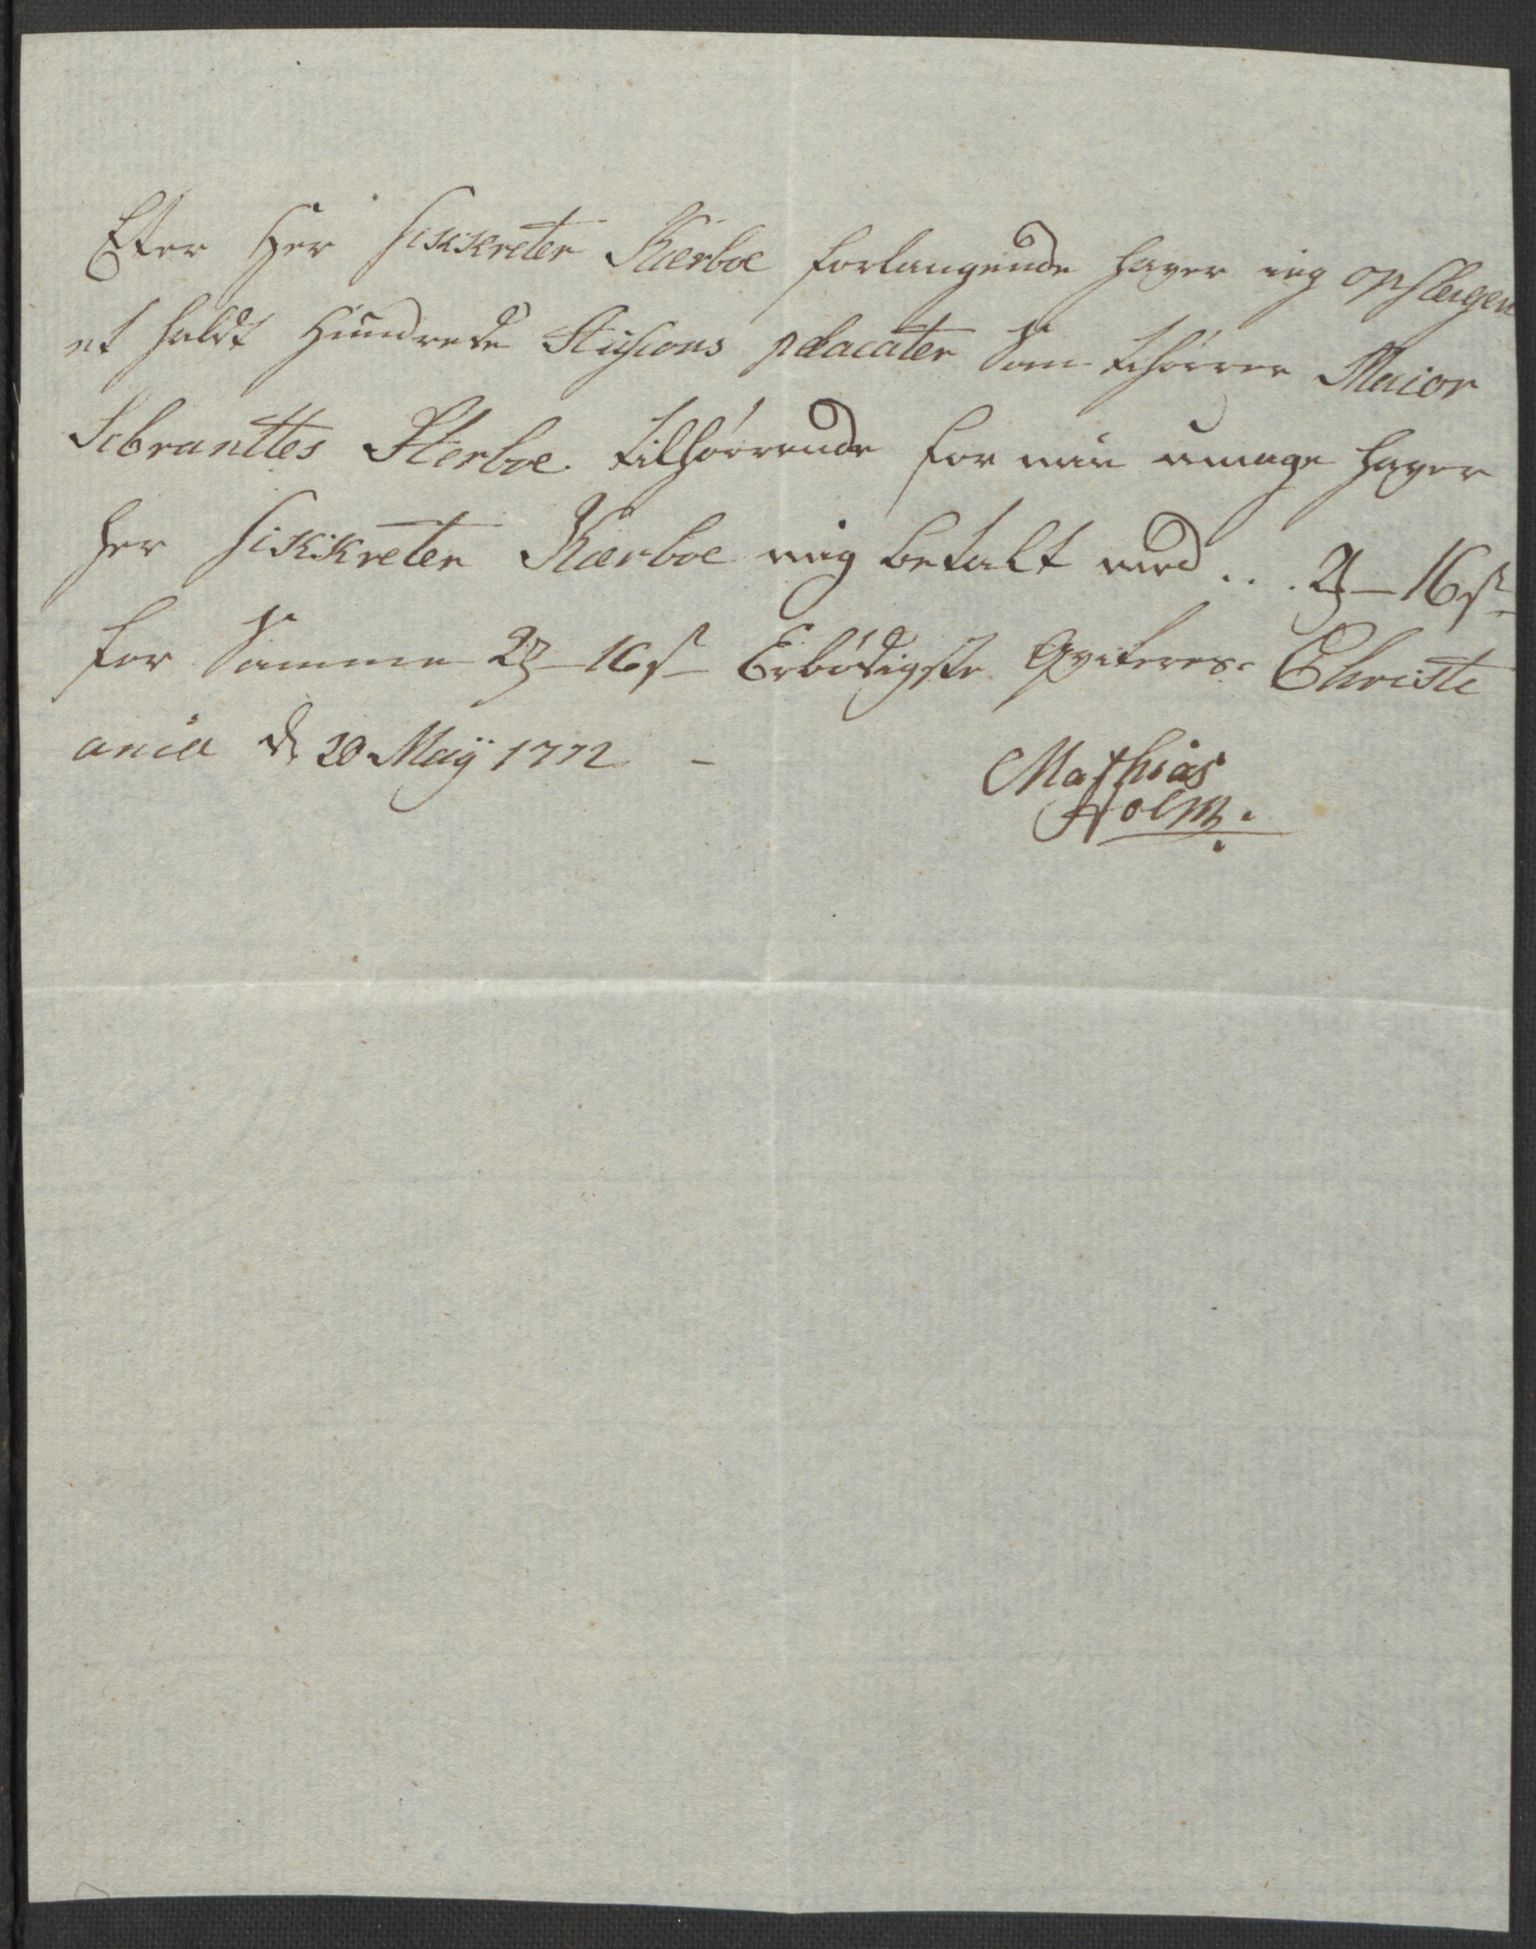 Efter Her Sikkreter Kierboe forlangende haver ieg opslagen
et haldt Hundrede Auscions placater Som tihører Maior
Sebranttes Sterboe tilhørrende for min umage haver
her Sikkreter Kierboe mig betalt med . . . 2 – 16 s
for Samme 2 – 16 s Erbödigste Qviteres. Christi
ania d 20 Maÿ 1772 –
Mathias
Holm.